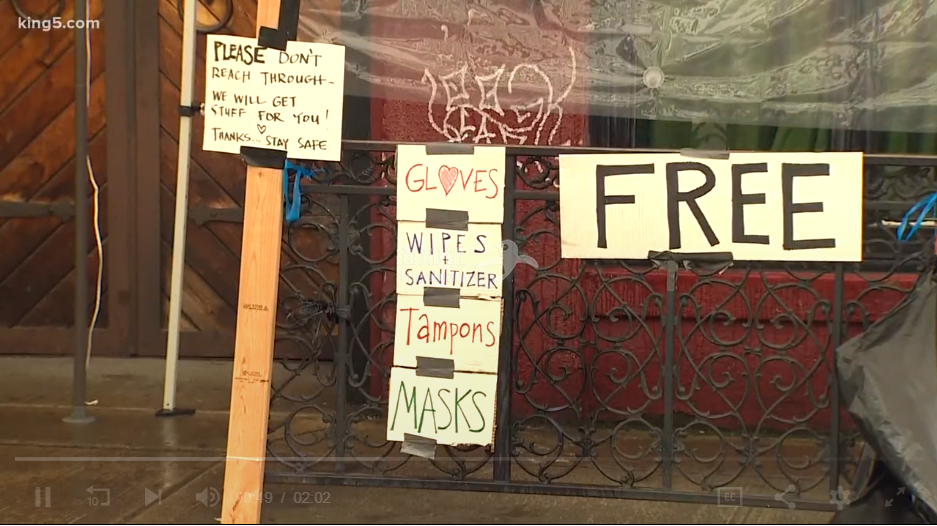 king5.com
PLEASE DON'T
REACH THROUGH-
WE WILL GET
STUFF FOR YOU!
THANKS... STAY SAFE
GLOVES
WIPES
+
SANITIZER
Tampons
MASKS
FREE
10
00:49 / 02:02
CC